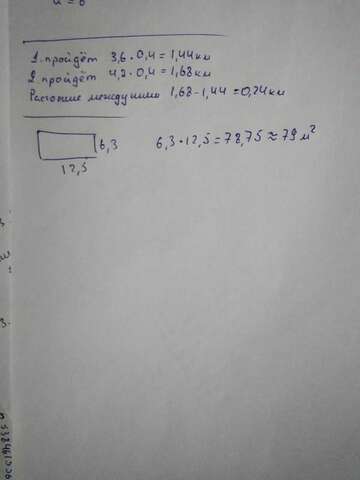 1. пройдёт 3,6 · 0,4 = 1,44 км
2. пройдёт 4,2 · 0,4 = 1,68 км
Растояние между ними 1,68 - 1,44 = 0,24 км
6,3
6,3 · 12,5 = 78,75 ≈ 79 м²
12,5